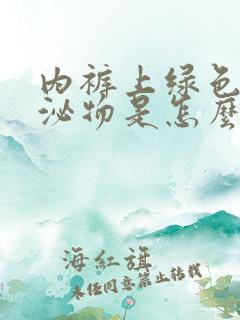 内裤上绿色
泌物是怎麼
海紅旗
未经同意禁止转载